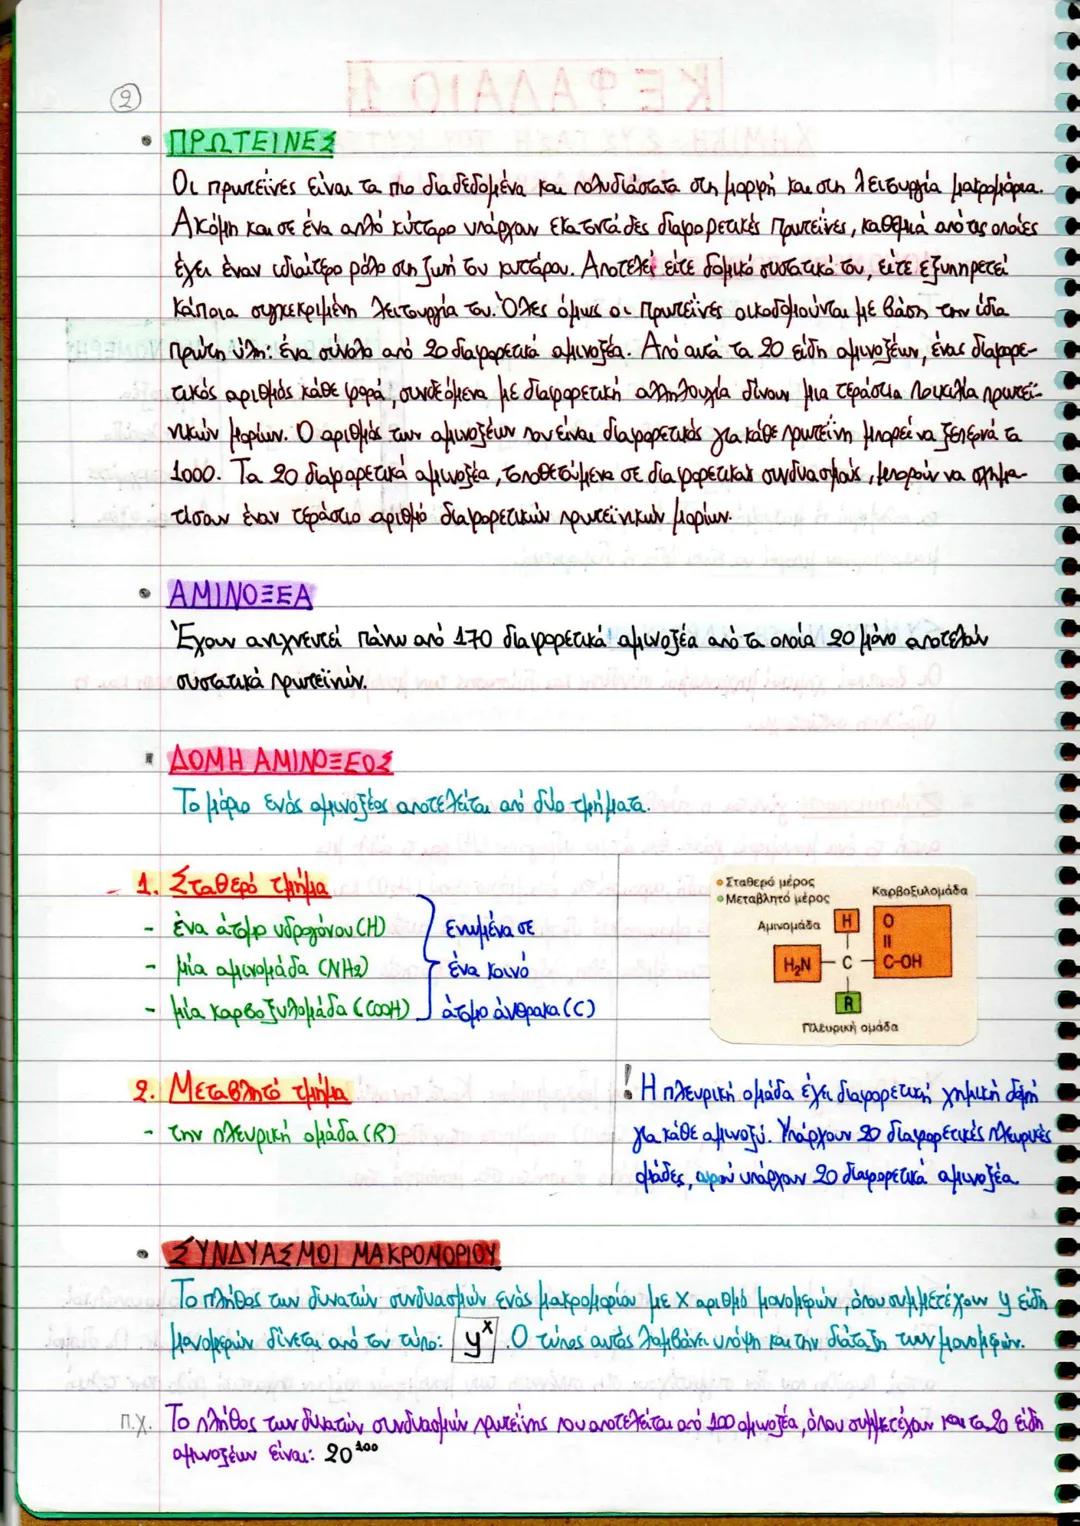 2
• ΠΡΩΤΕΙΝΕΣ
Οι πρωτεΐνες είναι τα πιο διαδεδομένα και πολυδιάστατα στη μορφή και στη λειτουργία μακρομόρια.
Ακόμη και σε ένα απλό κύτταρο υπάρχουν εκατοντάδες διαφορετικές πρωτεΐνες, καθεμιά από τις οποίες
έχει έναν ιδιαίτερο ρόλο στη ζωή του κυττάρου. Αποτελεί είτε δομικό συστατικό του, είτε εξυπηρετεί
κάποια συγκεκριμένη λειτουργία του. Όλες όμως οι πρωτεΐνες οικοδομούνται με βάση την ίδια
πρώτη ύλη: ένα σύνολο από 20 διαφορετικά αμινοξέα. Από αυτά τα 20 είδη αμινοξέων, ένας διαφορε-
τικός αριθμός κάθε φορά, συνδεόμενα με διαφορετική αλληλουχία δίνουν μια τεράστια ποικιλία πρωτεϊ-
νικών μορίων. Ο αριθμός των αμινοξέων που είναι διαφορετικός για κάθε πρωτεΐνη μπορεί να ξεπερνά τα
1000. Τα 20 διαφορετικά αμινοξέα, τοποθετούμενα σε διαφορετικούς συνδυασμούς, μπορούν να σχημα-
τίσουν έναν τεράστιο αριθμό διαφορετικών πρωτεϊνικών μορίων.
• ΑΜΙΝΟΞΕΑ
Έχουν ανιχνευτεί πάνω από 170 διαφορετικά αμινοξέα από τα οποία 20 μόνο αποτελούν
συστατικά πρωτεϊνών.
ΔΟΜΗ ΑΜΙΝΟΞΕΟΣ
Το μόριο ενός αμινοξέος αποτελείται από δύο τμήματα.
1. Σταθερό τμήμα
- ένα άτομο υδρογόνου (H)
- μία αμινομάδα (NH2)
- μία καρβοξυλομάδα (COOH)
Ενωμένα σε
ένα κοινό
άτομο άνθρακα (C)
• Σταθερό μέρος
• Μεταβλητό μέρος
Καρβοξυλομάδα
Αμινομάδα
H
O
H₂N
C
C-OH
R
Πλευρική ομάδα
2. Μεταβλητό τμήμα
- την πλευρική ομάδα (R)
! Η πλευρική ομάδα έχει διαφορετική χημική δομή
για κάθε αμινοξύ. Υπάρχουν 20 διαφορετικές πλευρικές
ομάδες, αφού υπάρχουν 20 διαφορετικά αμινοξέα
• ΣΥΝΔΥΑΣΜΟΙ ΜΑΚΡΟΜΟΡΙΟΥ
Το πλήθος των δυνατών συνδυασμών ενός μακρομορίου με x αριθμό μονομερών, όπου συμμετέχουν y είδη
μονομερών δίνεται από τον τύπο: yˣ. Ο τύπος αυτός λαμβάνει υπόψη και την διάταξη των μονομερών.
π.χ. Το πλήθος των δυνατών συνδυασμών πρωτεΐνης που αποτελείται από 100 αμινοξέα, όπου συμμετέχουν και τα 20 είδη
αμινοξέων είναι: 20¹⁰⁰